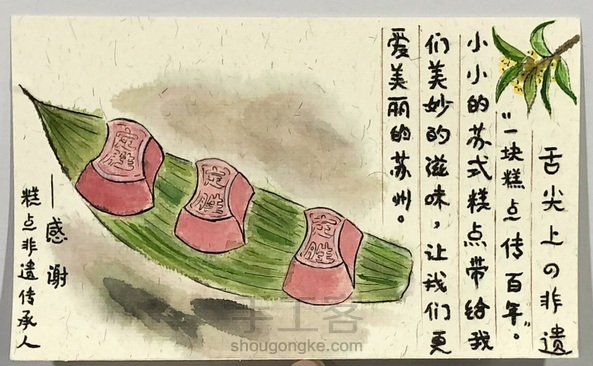 舌尖上の非遗
“一块糕点传百年”。
小小的苏式糕点带给我
们美妙的滋味，让我们更
爱美丽的苏州。
——感谢
糕点非遗传承人
定胜
定胜
手工客
shougongke.com